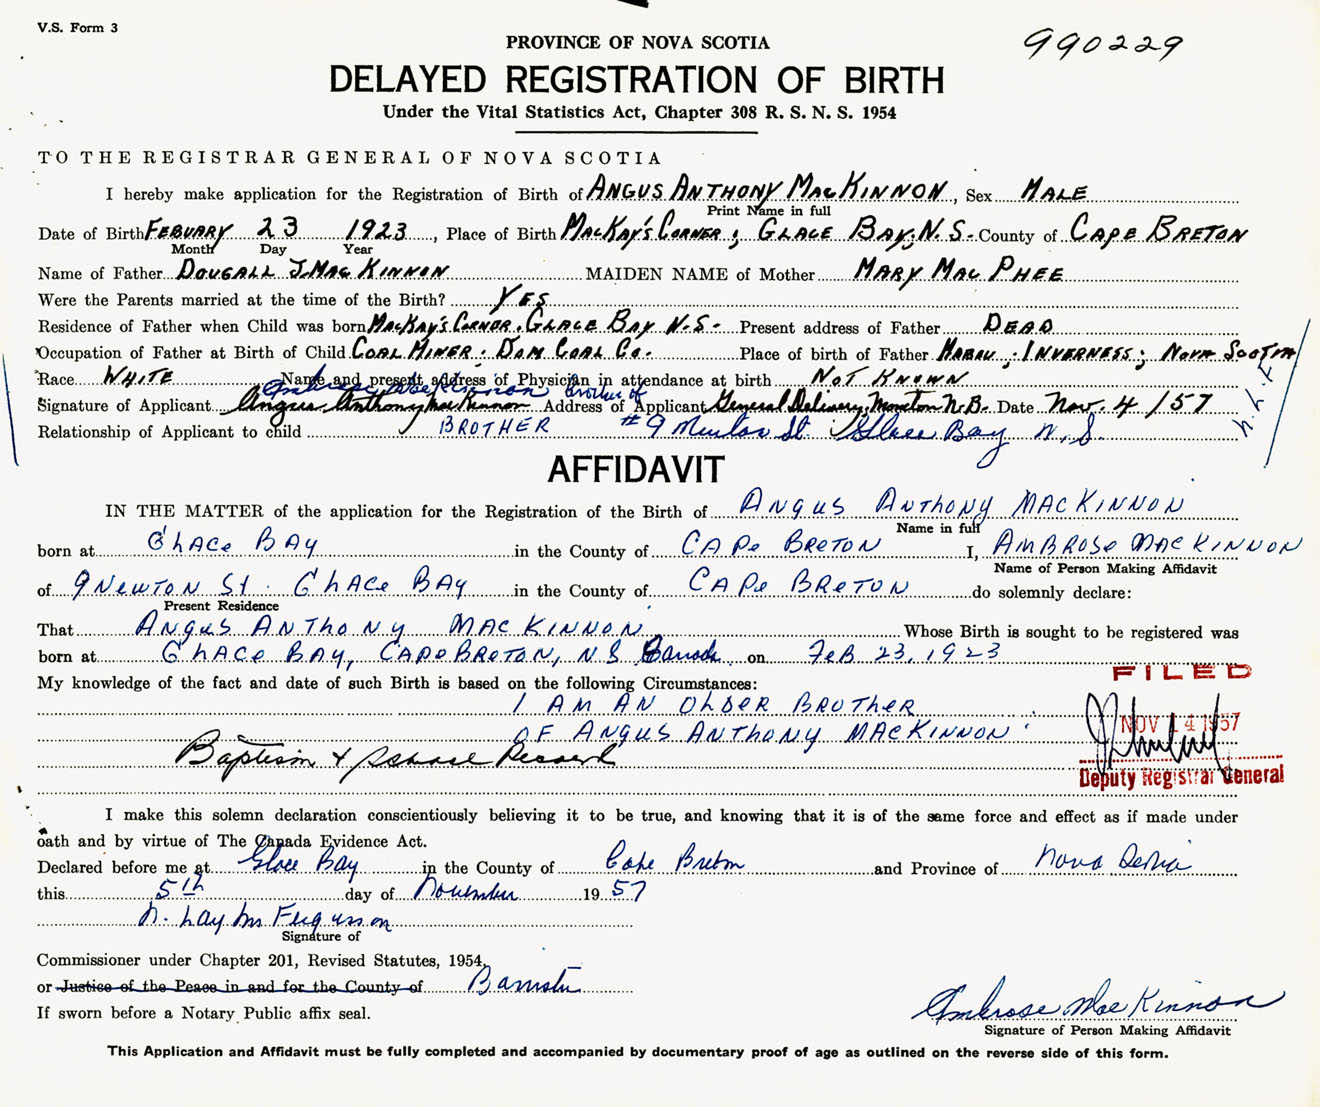 V.S. Form 3
990229
PROVINCE OF NOVA SCOTIA
DELAYED REGISTRATION OF BIRTH
Under the Vital Statistics Act, Chapter 308 R. S. N. S. 1954
TO THE REGISTRAR GENERAL OF NOVA SCOTIA
I hereby make application for the Registration of Birth of ANGUS ANTHONY MacKINNON, Sex MALE
Print Name in full
Date of Birth FEBUARY 23 1923, Place of Birth MacKay's CORNER; GLACE BAY, N.S. County of CAPE BRETON
Month Day Year
Name of Father DOUGALL J. MacKINNON MAIDEN NAME of Mother MARY MacPHEE
Were the Parents married at the time of the Birth? YES
Residence of Father when Child was born MacKay's CORNOR. GLACE BAY N.S. Present address of Father DEAD
Occupation of Father at Birth of Child COAL MINER. DOM COAL Co. Place of birth of Father MABOU; INVERNESS; NOVA SCOTIA
Race WHITE Name and present address of Physician in attendance at birth NOT KNOWN
Ambrose MacKinnon brother of
Signature of Applicant Angus Anthony MacKinnon Address of Applicant General Delivery, Moncton N.B. Date Nov. 4/57
Relationship of Applicant to child BROTHER #9 St. Glace Bay N.S.
AFFIDAVIT
IN THE MATTER of the application for the Registration of the Birth of ANGUS ANTHONY MACKINNON
Name in full
born at GLACE BAY in the County of CAPE BRETON I, AMBROSE MACKINNON
Name of Person Making Affidavit
of 9 NEWTON St. GLACE BAY in the County of CAPE BRETON do solemnly declare:
Present Residence
That ANGUS ANTHONY MACKINNON Whose Birth is sought to be registered was
born at GLACE BAY, CAPE BRETON, NS Canada on FEB 23, 1923
My knowledge of the fact and date of such Birth is based on the following Circumstances:
FILED
I AM AN OLDER BROTHER
OF ANGUS ANTHONY MACKINNON
NOV 14 1957
Baptism & School Record
Deputy Registrar General
I make this solemn declaration conscientiously believing it to be true, and knowing that it is of the same force and effect as if made under
oath and by virtue of The Canada Evidence Act.
Declared before me at Glace Bay in the County of Cape Breton and Province of Nova Scotia
this 5th day of November 1957
N. Layton Fergusson
Signature of
Commissioner under Chapter 201, Revised Statutes, 1954,
or Justice of the Peace in and for the County of Barrister
If sworn before a Notary Public affix seal.
Ambrose MacKinnon
Signature of Person Making Affidavit
This Application and Affidavit must be fully completed and accompanied by documentary proof of age as outlined on the reverse side of this form.